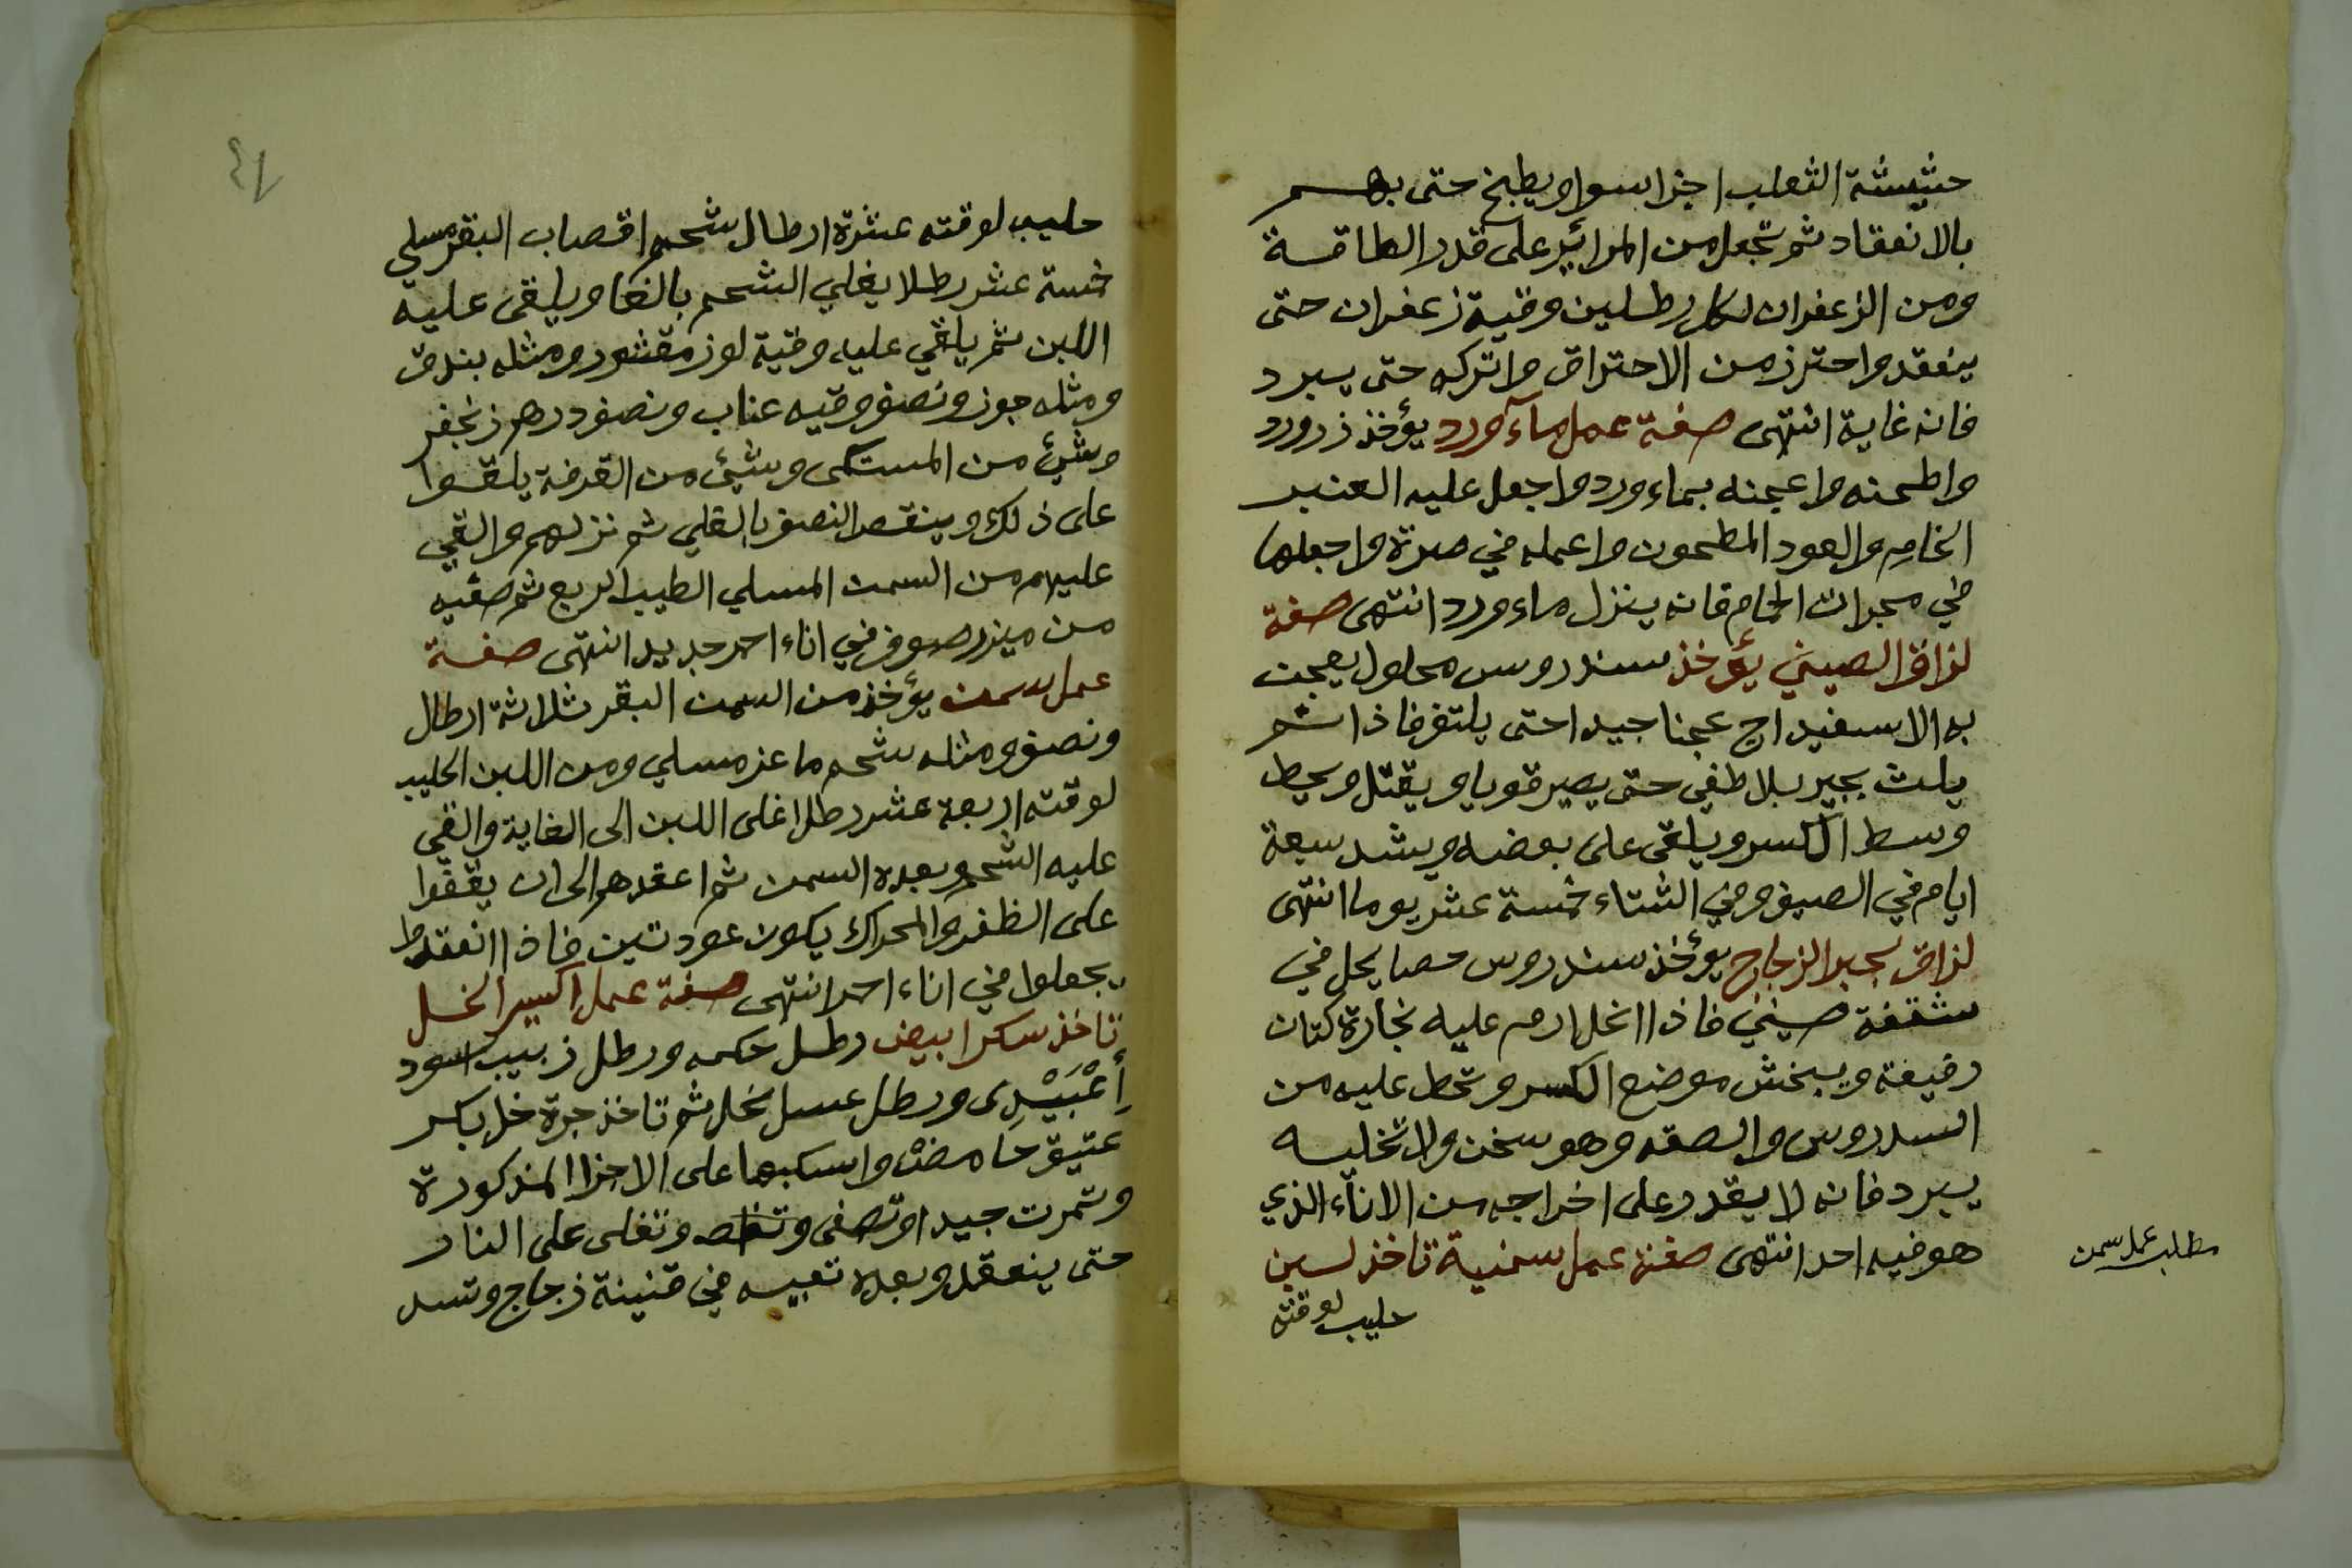 حشيشة الثعلب اجزا سوا ويطبخ حتى يهم
بالانعقاد ثم تجعل من المرائر على قدر الطاقة
ومن الزعفران لكل رطلين وقية زعفران حتى
ينعقد واحترز من الاحتراق واتركه حتى يبرد
فانه غاية انتهى صفة عمل مآء ورد يؤخذ زر ورد
واطحنه واعجنه بماء ورد واجعل عليه العنبر
الخام والعود المطحون واعمله في صرة واجعلها
في مجرات الحام فانه ينزل ماء ورد انتهى صفة
لزاق الصيني يؤخذ سندروس محلول يعجن
به الاسفيداج عجنا جيدا حتى يلتف فاذا
يلت بجير بلا طفي حتى يصير قويا ويفتل ويحط
وسط الكسر ويلقى على بعضه ويشد سبعة
ايام في الصيف وفي الشتاء خمسة عشر يوما انتهى
لزاق لجبر الزجاج يؤخذ سندروس حصا يحل في
شقفة صيني فاذا انحل ارم عليه نجارة كتان
رفيعة ويبخش موضع الكسر وتحط عليه من
السدروس والصقه وهو سخن ولا تخليه
يبرد فانه لا يقدر على اخراجه من الاناء الذي
هو فيه احد انتهى صفة عمل سمنية تاخذ لبن
حليب لوقته
مطلب عمل سمن
حليب لوقته عشرة ارطال شحم اقصاب البقر مسلي
خمسة عشر رطلا يغلي الشحم بالغا ويلقى عليه
اللبن ثم يلقي عليه وقية لوز مقشور ومثله بندق
ومثله جوز ونصف وقيه عناب ونصف درهم زنجفر
وشئ من المستكى وشئ من القرفة يلقوا
على ذلك وينقص النصف بالغلي ثم نزلهم والقي
عليهم من السمن المسلي الطيب الربع ثم صفيه
من ميزر صوف في اناء احمر جديد انتهى صفة
عمل سمن يؤخذ من السمن البقر ثلاثة ارطال
ونصف ومثله شحم ماعز مسلي ومن اللبن الحليب
لوقته اربعة عشر رطلا اغلى اللبن الى الغاية والقي
عليه الشحم وبعده السمن ثم اعقدهم الى ان يقفوا
على الظفر والمحراك يكون عود تين فاذا انعقدوا
يجعلوا في اناء احمر انتهى صفة عمل اكسير الخل
تاخذ سكر ابيض رطل حكمه ورطل زبيب اسود
أعْبَيْدِى ورطل عسل نحل ثم تاخذ جرة خل بكر
عتيق حامض واسكبها على الاجزا المذكورة
وتمرت جيدا وتصفى وتغلى على النار
حتى ينعقد وبعده تعبيه في قنينة زجاج وتسد